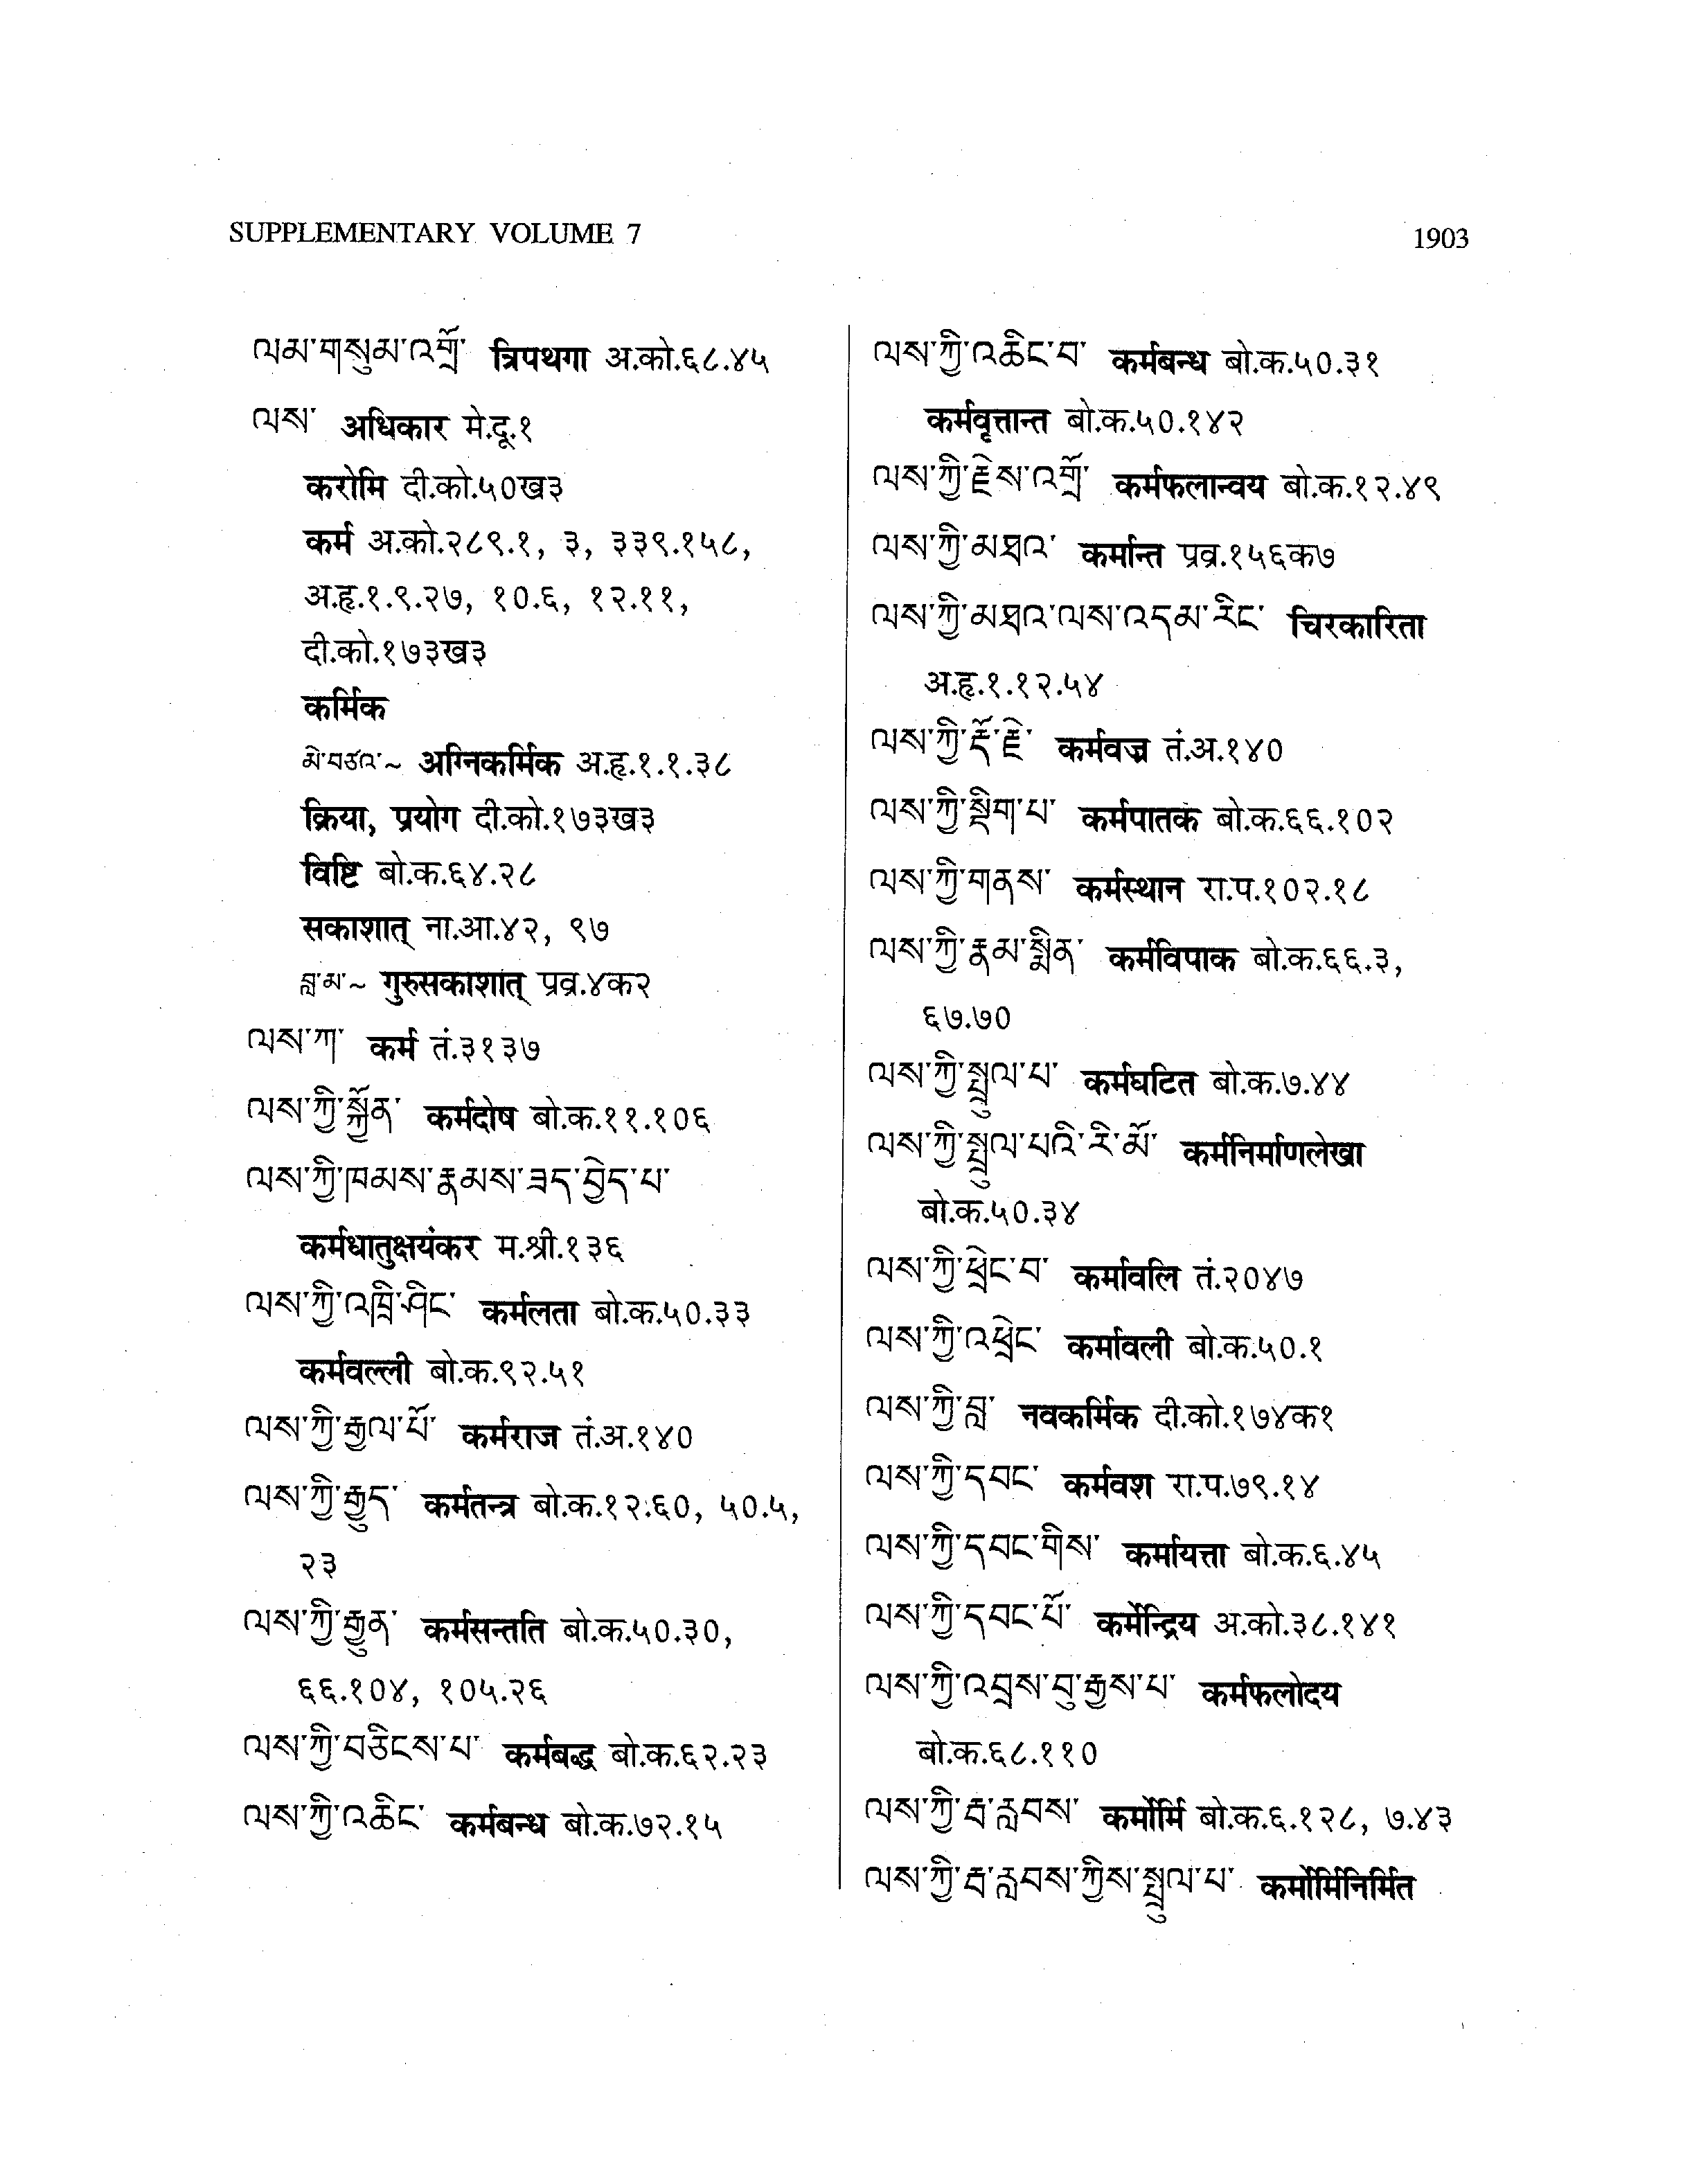 SUPPLEMENTARY VOLUME 7
1903
ལམ་གསུམ་འགྲོ་ त्रिपथगा अ.को.६८.४५
ལས་ अधिकार मे.दू.१
करोमि दी.को.५०ख३
कर्म अ.को.२८९.१, ३, ३३९.१५८,
अ.हृ.१.९.२७, १०.६, १२.११,
दी.को.१७३ख३
कर्मिक
མེ་བཙའ་~ अग्निकर्मिक अ.हृ.१.१.३८
क्रिया, प्रयोग दी.को.१७३ख३
विष्टि बो.क.६४.२८
सकाशात् ना.आ.४२, ९७
བླ་མ་~ गुरुसकाशात् प्रव्र.४क२
ལས་ཀ་ कर्म तं.३१३७
ལས་ཀྱི་སྐྱོན་ कर्मदोष बो.क.११.१०६
ལས་ཀྱི་ཁམས་རྣམས་ཟད་བྱེད་པ་
कर्मधातुक्षयंकर म.श्री.१३६
ལས་ཀྱི་འཁྲི་ཤིང་ कर्मलता बो.क.५०.३३
कर्मवल्ली बो.क.९२.५१
ལས་ཀྱི་རྒྱལ་པོ་ कर्मराज तं.अ.१४०
ལས་ཀྱི་རྒྱུད་ कर्मतन्त्र बो.क.१२.६०, ५०.५,
२३
ལས་ཀྱི་རྒྱུན་ कर्मसन्तति बो.क.५०.३०,
६६.१०४, १०५.२६
ལས་ཀྱི་བཅིངས་པ་ कर्मबद्ध बो.क.६२.२३
ལས་ཀྱི་འཆིང་ कर्मबन्ध बो.क.७२.१५
ལས་ཀྱི་འཆིང་བ་ कर्मबन्ध बो.क.५०.३१
कर्मवृत्तान्त बो.क.५०.१४२
ལས་ཀྱི་རྗེས་འགྲོ་ कर्मफलान्वय बो.क.१२.४९
ལས་ཀྱི་མཐའ་ कर्मान्त प्रव्र.१५६क७
ལས་ཀྱི་མཐའ་ལས་འདམ་རིང་ चिरकारिता
अ.हृ.१.१२.५४
ལས་ཀྱི་རྡོ་རྗེ་ कर्मवज्र तं.अ.१४०
ལས་ཀྱི་སྡིག་པ་ कर्मपातक बो.क.६६.१०२
ལས་ཀྱི་གནས་ कर्मस्थान रा.प.१०२.१८
ལས་ཀྱི་རྣམ་སྨིན་ कर्मविपाक बो.क.६६.३,
६७.७०
ལས་ཀྱི་སྤྲུལ་པ་ कर्मघटित बो.क.७.४४
ལས་ཀྱི་སྤྲུལ་པའི་རི་མོ་ कर्मनिर्माणलेखा
बो.क.५०.३४
ལས་ཀྱི་ཕྲེང་བ་ कर्मावलि तं.२०४७
ལས་ཀྱི་འཕྲེང་ कर्मावली बो.क.५०.१
ལས་ཀྱི་བླ་ नवकर्मिक दी.को.१७४क१
ལས་ཀྱི་དབང་ कर्मवश रा.प.७९.१४
ལས་ཀྱི་དབང་གིས་ कर्मायत्ता बो.क.६.४५
ལས་ཀྱི་དབང་པོ་ कर्मेन्द्रिय अ.को.३८.१४१
ལས་ཀྱི་འབྲས་བུ་རྒྱས་པ་ कर्मफलोदय
बो.क.६८.११०
ལས་ཀྱི་རྦ་རླབས་ कर्मोर्मि बो.क.६.१२८, ७.४३
ལས་ཀྱི་རྦ་རླབས་ཀྱིས་སྤྲུལ་པ་ कर्मोर्मिनिर्मित